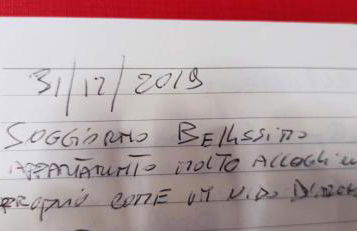 31/12/2019
SOGGIORNO BELLISSIMO
APPARTAMENTO MOLTO ACCOGLIEN
PROPRIO COME UN NIDO D'AMORE